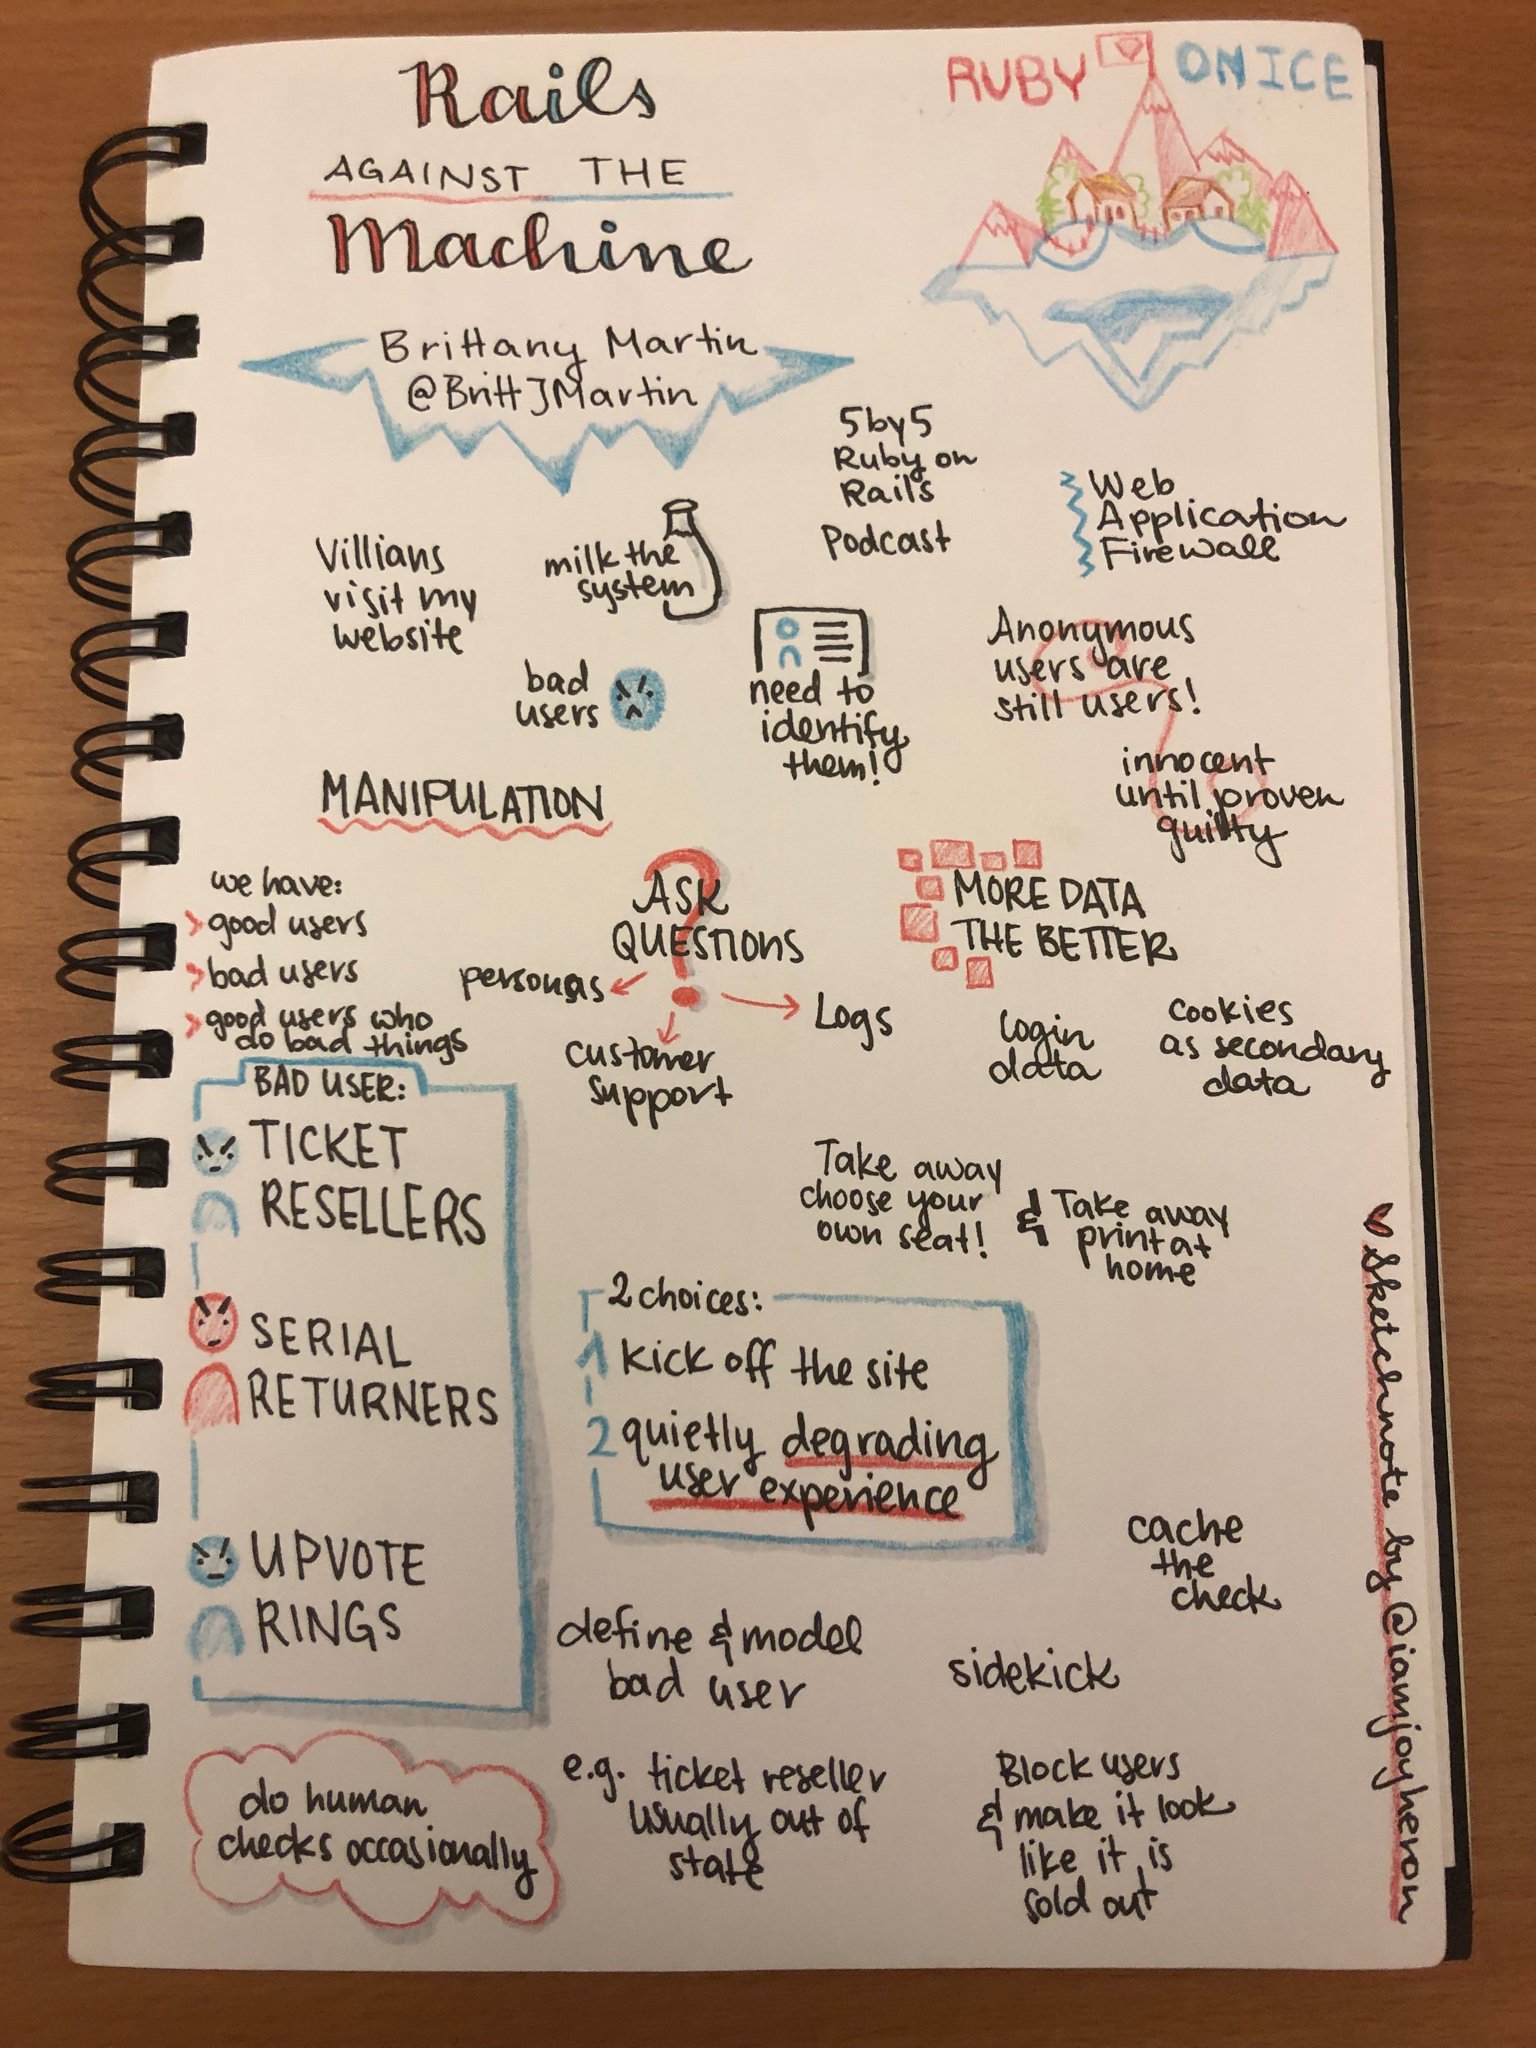 Rails
AGAINST THE
Machine
RUBY ON ICE
Brittany Martin
@BrittJMartin
5by5
Ruby on
Rails
Podcast
Web
Application
Firewall
Villians
visit my
website
milk the
system
bad
users
need to
identify
them!
Anonymous
users are
still users!
innocent
until proven
guilty
MANIPULATION
we have:
good users
bad users
good users who
do bad things
ASK
QUESTIONS
personas
customer
support
Logs
MORE DATA
THE BETTER
login
data
cookies
as secondary
data
BAD USER:
TICKET
RESELLERS
SERIAL
RETURNERS
UPVOTE
RINGS
Take away
choose your
own seat!
& Take away
print at
home
2 choices:
1 kick off the site
2 quietly degrading
user experience
cache
the
check
define & model
bad user
sidekick
do human
checks occasionally
e.g. ticket reseller
usually out of
state
Block users
& make it look
like it is
sold out
Sketchnote by @iamjoyheron